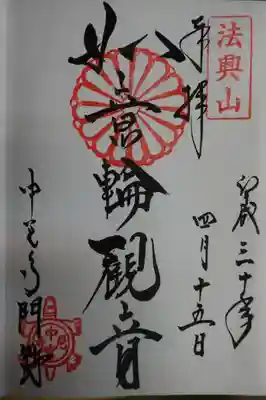 法興山
奉拝
平成三十年
四月十五日
如意輪觀音
中宮寺門跡